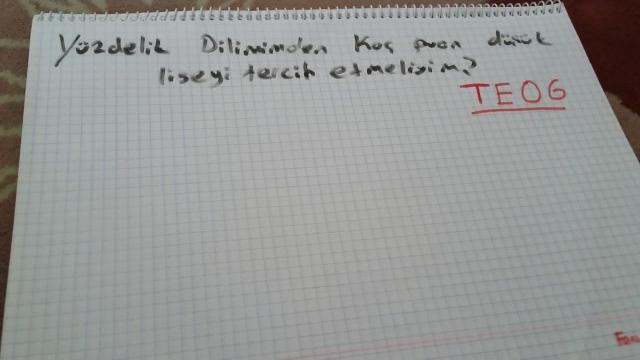 Yüzdelik Dilimimden Kaç puan düşük
liseyi tercih etmeliyim?
TEOG